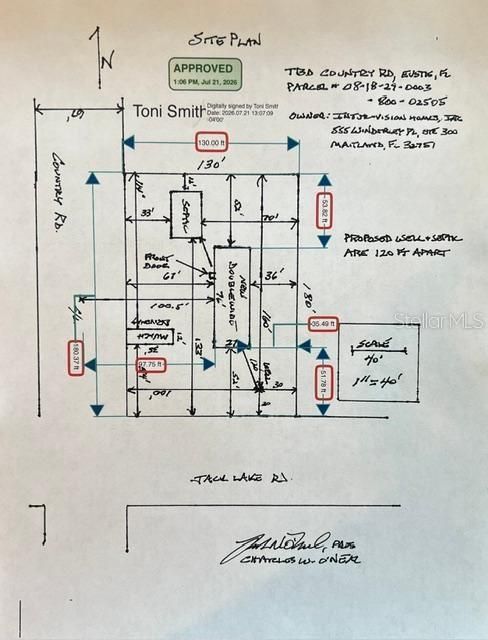 SITE PLAN
N
APPROVED
1:06 PM, Jul 21, 2026
Toni Smith
Digitally signed by Toni Smith
Date: 2026.07.21 13:07:09
-04'00'
TBD COUNTRY RD, EUSTIS, FL
PARCEL # 08-18-27-0003
-800-02505
OWNER: INTER-VISION HOMES, INC
555 WINDERLEY PL, STE 300
MAITLAND, FL 32751
67'
130.00 ft
130'
COUNTRY RD.
SEPTIC
33'
70'
53.82 ft
PROPOSED WELL & SEPTIC
ARE 120 FT APART
FRONT
DOOR
NEW
DOUBLEWIDE
67'
36'
76'
180'
100.5'
160'
StellarMLS
35.49 ft
DRIVEWAY
MULCH
12'
35'
133'
27'
SCALE
40'
1"=40'
180.37 ft
97.75 ft
WELL
51.78 ft
100'
30
JACK LAKE RD.
PRES
CHARLES W. O'NEAL